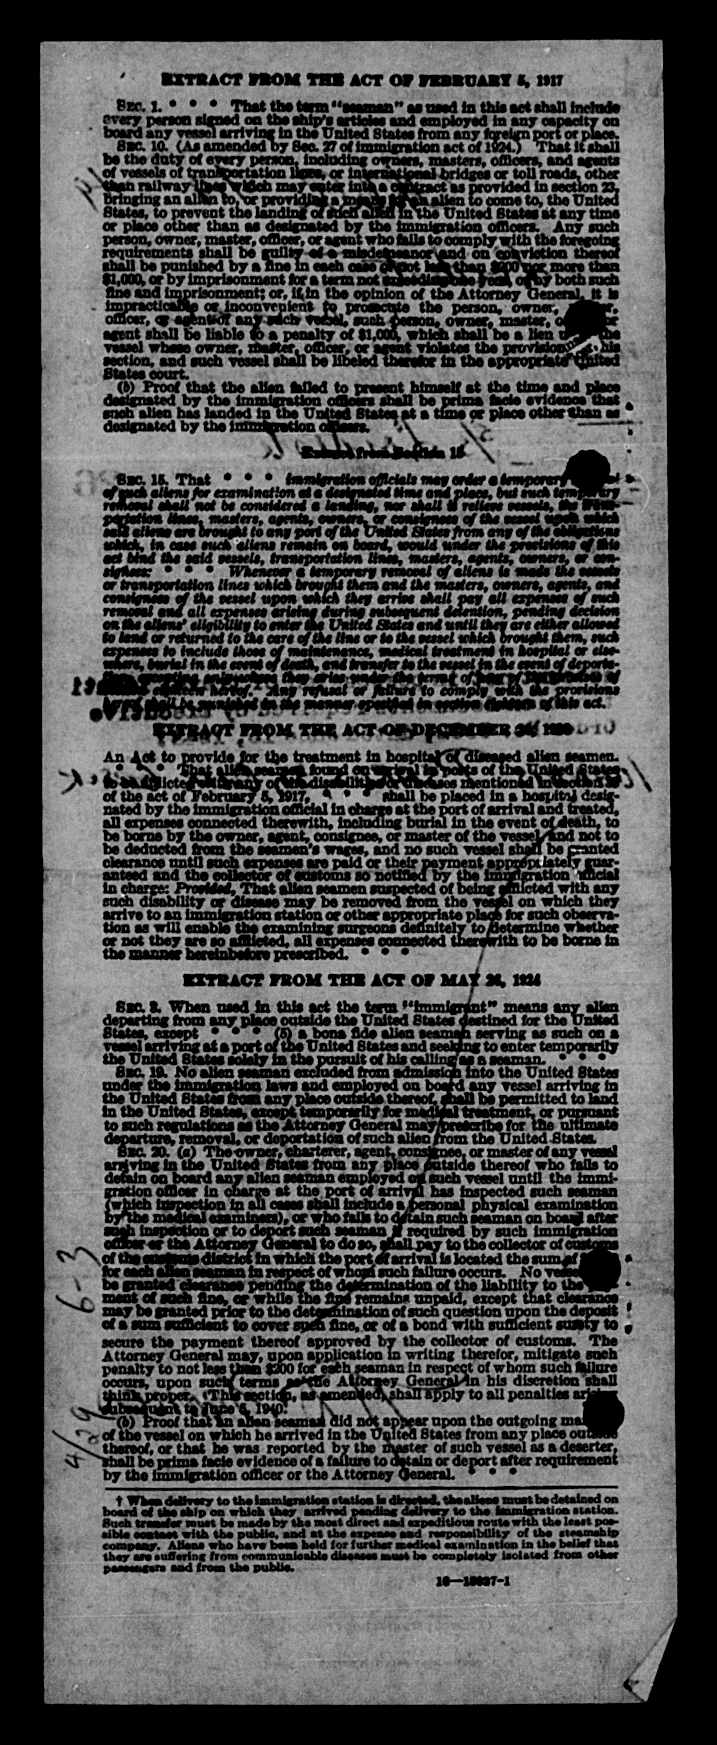 EXTRACT FROM THE ACT OF FEBRUARY 5, 1917
SEC. 1. * * * That the term "seaman" as used in this act shall include
every person signed on the ship's articles and employed in any capacity on
board any vessel arriving in the United States from any foreign port or place.
SEC. 10. (As amended by Sec. 27 of immigration act of 1924.) That it shall
be the duty of every person, including owners, masters, officers, and agents
of vessels of transportation lines, or international bridges or toll roads, other
than railway lines which may enter into a contract as provided in section 23,
bringing an alien to, or providing a means for an alien to come to, the United
States, to prevent the landing of such alien in the United States at any time
or place other than as designated by the immigration officers. Any such
person, owner, master, officer, or agent who fails to comply with the foregoing
requirements shall be guilty of a misdemeanor and on conviction thereof
shall be punished by a fine in each case of not less than $200 nor more than
$1,000, or by imprisonment for a term not exceeding one year, or by both such
fine and imprisonment; or, if in the opinion of the Attorney General, it is
impracticable or inconvenient to prosecute the person, owner,
officer, or agent of any such vessel, such person, owner, master,
agent shall be liable to a penalty of $1,000, which shall be a lien
vessel whose owner, master, officer, or agent violates the provisions this
section, and such vessel shall be libeled therefor in the appropriate United
States court.
(b) Proof that the alien failed to present himself at the time and place
designated by the immigration officers shall be prima facie evidence that
such alien has landed in the United States at a time or place other than as
designated by the immigration officers.
Section 15
SEC. 15. That * * * immigration officials may order a temporary
of such aliens for examination at a designated time and place, but such temporary
removal shall not be considered a landing, nor shall it relieve vessels, the trans-
portation lines, masters, agents, owners, or consignees of the vessel upon which
said aliens are brought to any port of the United States from any of the obligations
which, in case such aliens remain on board, would under the provisions of this
act bind the said vessels, transportation lines, masters, agents, owners, or con-
signees: * * * Whenever a temporary removal of aliens is made the vessels
or transportation lines which brought them and the masters, owners, agents, and
consignees of the vessel upon which they arrive shall pay all expenses of such
removal and all expenses arising during subsequent detention, pending decision
on the aliens' eligibility to enter the United States and until they are either allowed
to land or returned to the care of the line or to the vessel which brought them, such
expenses to include those of maintenance, medical treatment in hospital or else-
where, burial in the event of death, and transfer to the vessel in the event of deporta-
hereof." Any refusal or failure to comply with the provisions
hereof shall be punished in the manner specified in section eighteen of this act.
EXTRACT FROM THE ACT OF DECEMBER 26, 1920
An Act to provide for the treatment in hospital of diseased alien seamen.
* * * That alien seamen found on arrival in ports of the United States
to be afflicted with any of the disabilities or diseases mentioned in section
of the act of February 5, 1917, * * * shall be placed in a hospital desig-
nated by the immigration official in charge at the port of arrival and treated,
all expenses connected therewith, including burial in the event of death, to
be borne by the owner, agent, consignee, or master of the vessel, and not to
be deducted from the seamen's wages, and no such vessel shall be granted
clearance until such expenses are paid or their payment appropriately guar-
anteed and the collector of customs so notified by the immigration official
in charge: Provided, That alien seamen suspected of being afflicted with any
such disability or disease may be removed from the vessel on which they
arrive to an immigration station or other appropriate place for such observa-
tion as will enable the examining surgeons definitely to determine whether
or not they are so afflicted, all expenses connected therewith to be borne in
the manner hereinbefore prescribed. * * *
EXTRACT FROM THE ACT OF MAY 26, 1924
SEC. 3. When used in this act the term "immigrant" means any alien
departing from any place outside the United States destined for the United
States, except * * * (5) a bona fide alien seaman serving as such on a
vessel arriving at a port of the United States and seeking to enter temporarily
the United States solely in the pursuit of his calling as a seaman. * * *
SEC. 19. No alien seaman excluded from admission into the United States
under the immigration laws and employed on board any vessel arriving in
the United States from any place outside thereof, shall be permitted to land
in the United States, except temporarily for medical treatment, or pursuant
to such regulations as the Attorney General may prescribe for the ultimate
departure, removal, or deportation of such alien from the United States.
SEC. 20. (a) The owner, charterer, agent, consignee, or master of any vessel
arriving in the United States from any place outside thereof who fails to
detain on board any alien seaman employed on such vessel until the immi-
gration officer in charge at the port of arrival has inspected such seaman
(which inspection in all cases shall include a personal physical examination
by the medical examiners), or who fails to detain such seaman on board after
such inspection or to deport such seaman if required by such immigration
officer or the Attorney General to do so, shall pay to the collector of customs
of the customs district in which the port of arrival is located the sum of
for each alien seaman in respect of whom such failure occurs. No vessel
be granted clearance pending the determination of the liability to the
ment of such fine, or while the fine remains unpaid, except that clearance
may be granted prior to the determination of such question upon the deposit
of a sum sufficient to cover such fine, or of a bond with sufficient surety to
secure the payment thereof approved by the collector of customs. The
Attorney General may, upon application in writing therefor, mitigate such
penalty to not less than $200 for each seaman in respect of whom such failure
occurs, upon such terms as the Attorney General in his discretion shall
think proper. This section, as amended, shall apply to all penalties arising
subsequent to June 5, 1940.
(b) Proof that an alien seaman did not appear upon the outgoing
of the vessel on which he arrived in the United States from any place outside
thereof, or that he was reported by the master of such vessel as a deserter,
shall be prima facie evidence of a failure to detain or deport after requirement
by the immigration officer or the Attorney General. * * *
† When delivery to the immigration station is directed, the aliens must be detained on
board of the ship on which they arrived pending delivery to the immigration station.
Such transfer must be made by the most direct and expeditious route with the least pos-
sible contact with the public, and at the expense and responsibility of the steamship
company. Aliens who have been held for further medical examination in the belief that
they are suffering from communicable diseases must be completely isolated from other
passengers and from the public.
16—15037-1
6-3
4/29